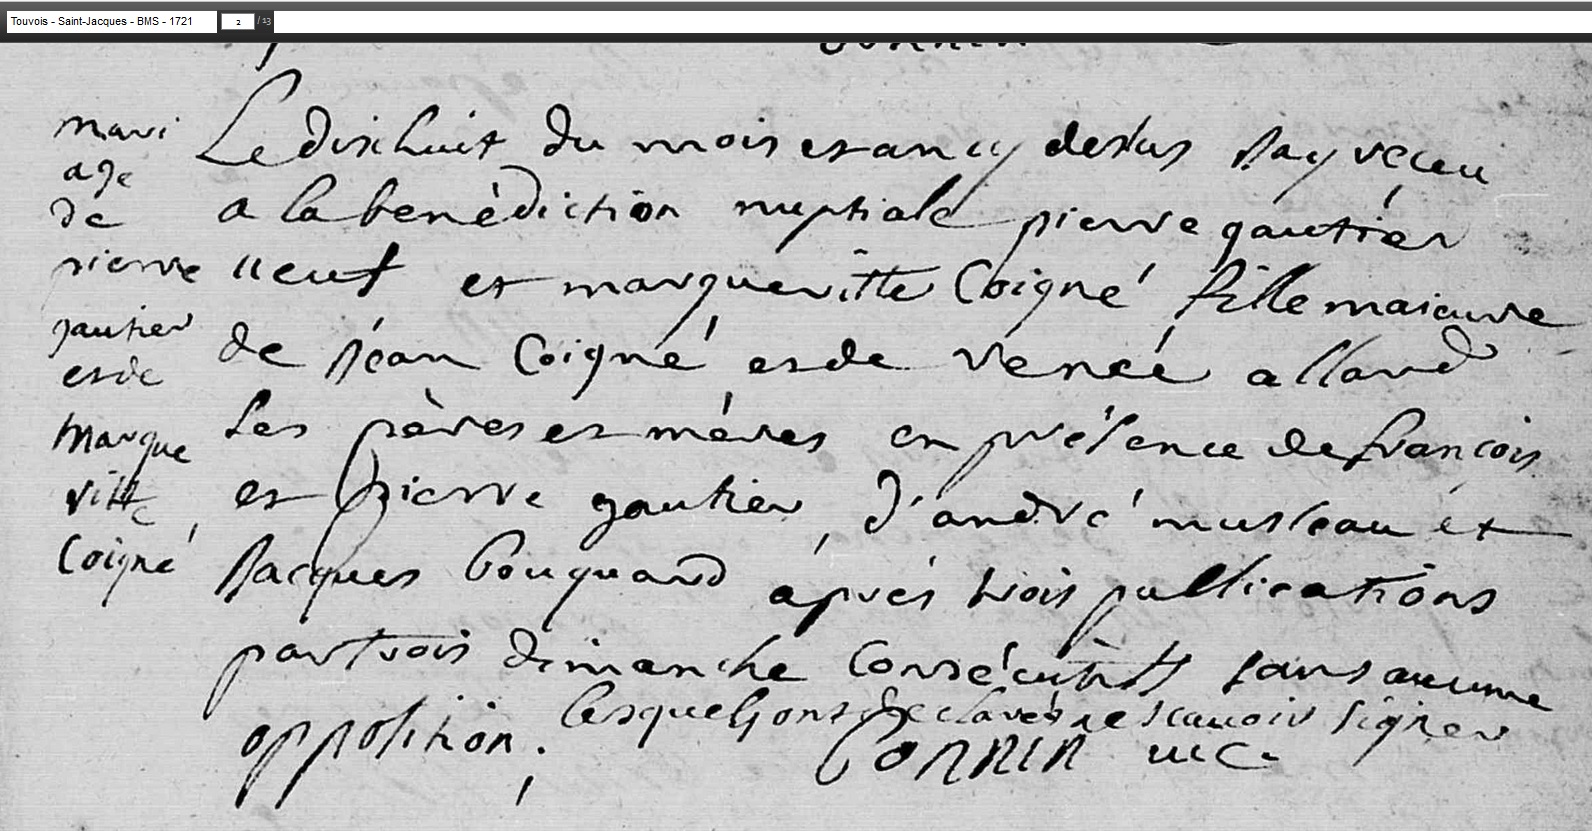 Touvois - Saint-Jacques - BMS - 1721 2 / 13
mari
age
de
pierre
gautier
et de
Margue
ritte
Coigné
Le dixhuit du mois et an cy dessus Jay receu
a la benédiction nuptiale pierre gautier
veuf et margueritte Coigné fille maieure
de Jéan Coigné et de renée allard
Les pères et mères en présence de françois
et pierre gautier, d'andré musseau et
Jacques Gouquard aprés trois publications
par trois dimanche Consécutifs sans aucune
opposition; lesquels ont declarés ne scauoir signer
Bonnin